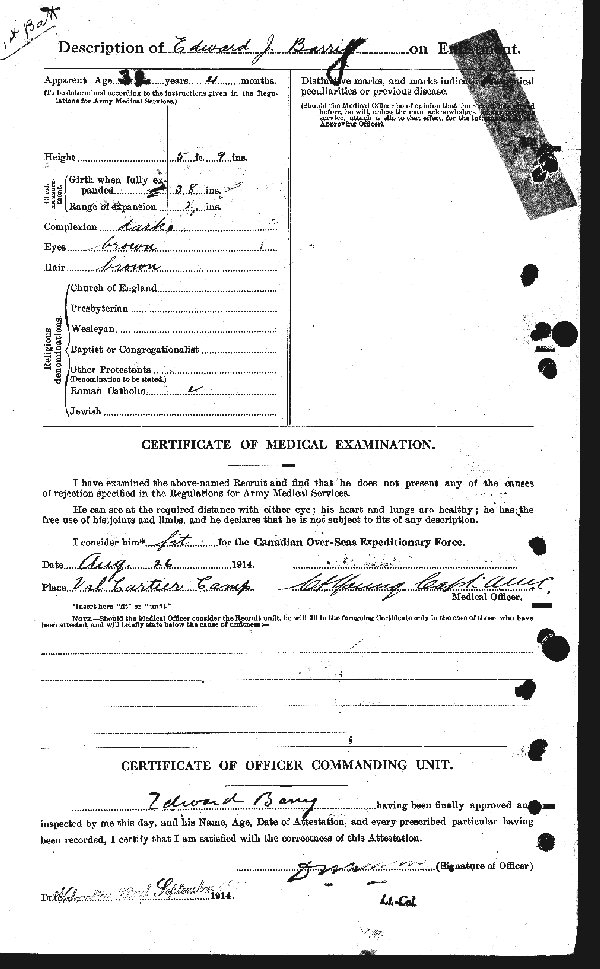 1st Batt
Description of Edward J. Barry on Enlistment.
Apparent Age years months.
(To be determined according to the instructions given in the Regu-
lations for Army Medical Services.)
Distinctive marks, and marks indicating congenital
peculiarities or previous disease.
(Should the Medical Officer be of opinion that the recruit has served
before, he will, unless the man acknowledges to any previous
service, attach a slip to that effect, for the information of the
Approving Officer).
Height 5 ft. 9 ins.
Girth when fully ex-
panded 38 ins.
Range of expansion 2 ins.
Complexion dark
Eyes brown
Hair brown
Religious denominations.
Church of England
Presbyterian
Wesleyan
Baptist or Congregationalist
Other Protestants
(Denomination to be stated.)
Roman Catholic ✓
Jewish
CERTIFICATE OF MEDICAL EXAMINATION.
I have examined the above-named Recruit and find that he does not present any of the causes
of rejection specified in the Regulations for Army Medical Services.
He can see at the required distance with either eye; his heart and lungs are healthy; he has the
free use of his joints and limbs, and he declares that he is not subject to fits of any description.
I consider him* fit for the Canadian Over-Seas Expeditionary Force.
Date Aug 26 1914.
Place Val Cartier Camp Young Capt
Medical Officer.
*Insert here "fit" or "unfit."
NOTE.—Should the Medical Officer consider the Recruit unfit, he will fill in the foregoing Certificate only in the case of those who have
been attested, and will briefly state below the cause of unfitness:—
CERTIFICATE OF OFFICER COMMANDING UNIT.
Edward Barry having been finally approved and
inspected by me this day, and his Name, Age, Date of Attestation, and every prescribed particular having
been recorded, I certify that I am satisfied with the correctness of this Attestation.
(Signature of Officer)
Date September 1914.
Lt-Col